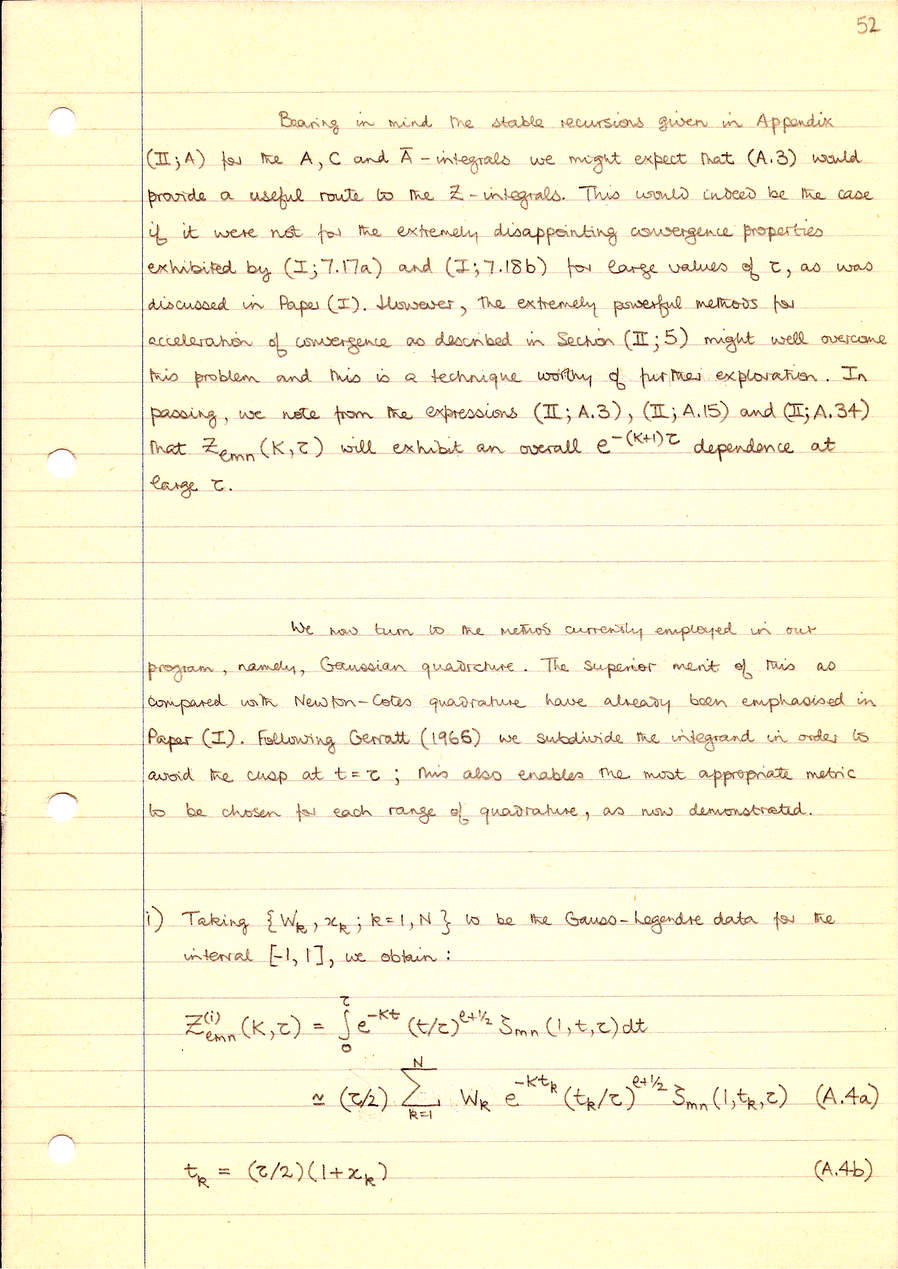 52
Bearing in mind the stable recursions given in Appendix
(II;A) for the A, C and Ā-integrals we might expect that (A.3) would
provide a useful route to the Z-integrals. This would indeed be the case
if it were not for the extremely disappointing convergence properties
exhibited by (I;7.17a) and (I;7.18b) for large values of τ, as was
discussed in Paper (I). However, the extremely powerful methods for
acceleration of convergence as described in Section (II;5) might well overcome
this problem and this is a technique worthy of further exploration. In
passing, we note from the expressions (II; A.3), (II; A.15) and (II; A.34)
that Zℓmn(K,τ) will exhibit an overall e^-(K+1)τ dependence at
large τ.
We now turn to the method currently employed in our
program, namely, Gaussian quadrature. The superior merit of this as
compared with Newton-Cotes quadrature have already been emphasised in
Paper (I). Following Gerratt (1966) we subdivide the integrand in order to
avoid the cusp at t=τ; this also enables the most appropriate metric
to be chosen for each range of quadrature, as now demonstrated.
i) Taking {Wk, xk; k=1,N} to be the Gauss-Legendre data for the
interval [-1,1], we obtain:
Zℓmn^(i)(K,τ) = ∫₀^τ e^-Kt (t/τ)^ℓ+1/2 ζmn(1,t,τ)dt
≃ (τ/2) Σ_k=1^N Wk e^-Ktk (tk/τ)^ℓ+1/2 ζmn(1,tk,τ) (A.4a)
tk = (τ/2)(1+xk) (A.4b)